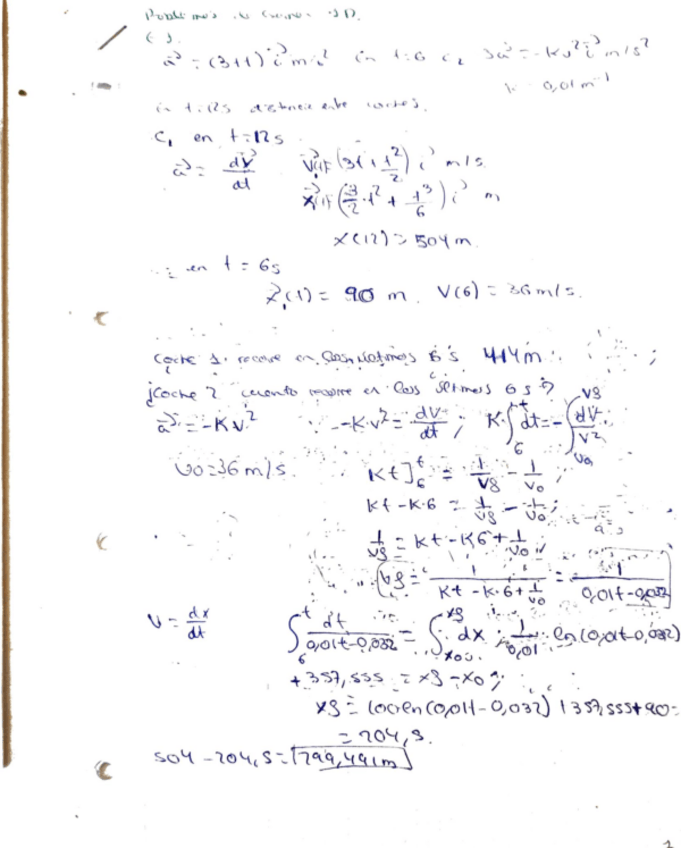 Problemas de 1D.
a⃗ = (3+t) i⃗ m/s² en t=6 c₂ a⃗ = -kv² i⃗ m/s²
k 0,01 m⁻¹
en t=12s distancia entre coches.
C₁ en t=12s
a⃗ = dv⃗/dt (3t + t²/2) i⃗ m/s.
(3/2 t² + t³/6) i⃗ m
x(12) = 504 m.
en t = 6s
= 90 m. V(6) = 36 m/s.
coche 1. recorre en 6 s 414 m
¿Coche 2 cuanto recorre en los últimos 6 s?
a⃗ = -Kv² -K·v² = dv/dt ; K·∫₆ᵗ dt = -∫ dv/v²
v₀ = 36 m/s. Kt]₆ᵗ = 1/vf - 1/v₀
Kt - K·6 = 1/vf - 1/v₀;
1/vf = Kt - K6 + 1/v₀
vf = 1/(Kt - K·6 + 1/v₀) = 1/(0,01t - 0,032)
v = dx/dt ∫₆ᵗ dt/(0,01t-0,032) = ∫ dx ; 1/0,01 ln(0,01t-0,032)
+357,555 = xf - x₀;
xf = 100 ln(0,01t - 0,032) + 357,555 + 90 =
= 204,5.
504 - 204,5 = 299,491 m